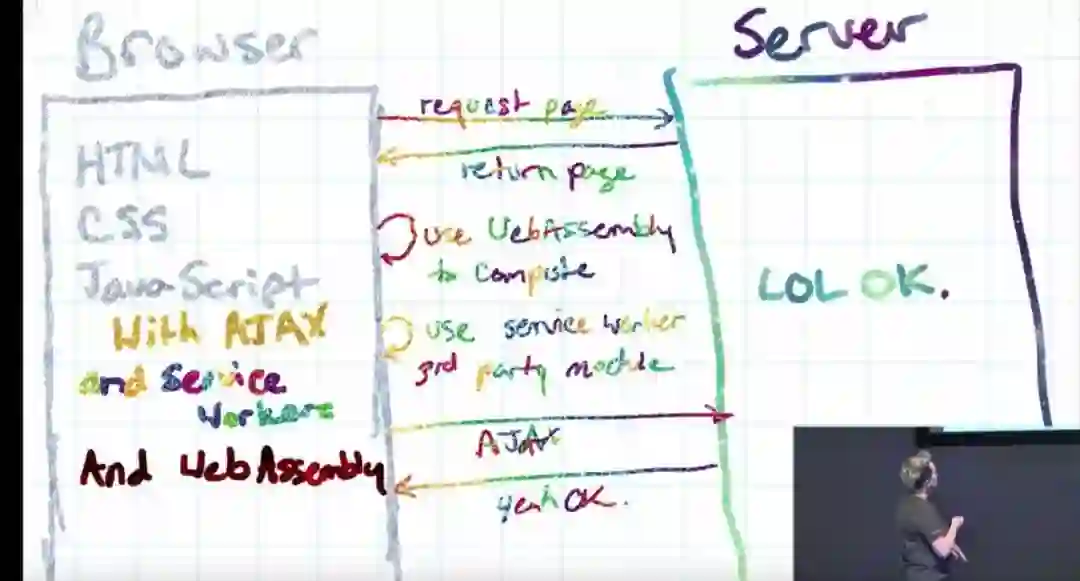 Browser
Server
HTML
CSS
JavaScript
With AJAX
and Service
Workers
And WebAssembly
request page
return page
use WebAssembly
to compute
use service worker
3rd party module
AJAX
yeah OK.
LOL OK.